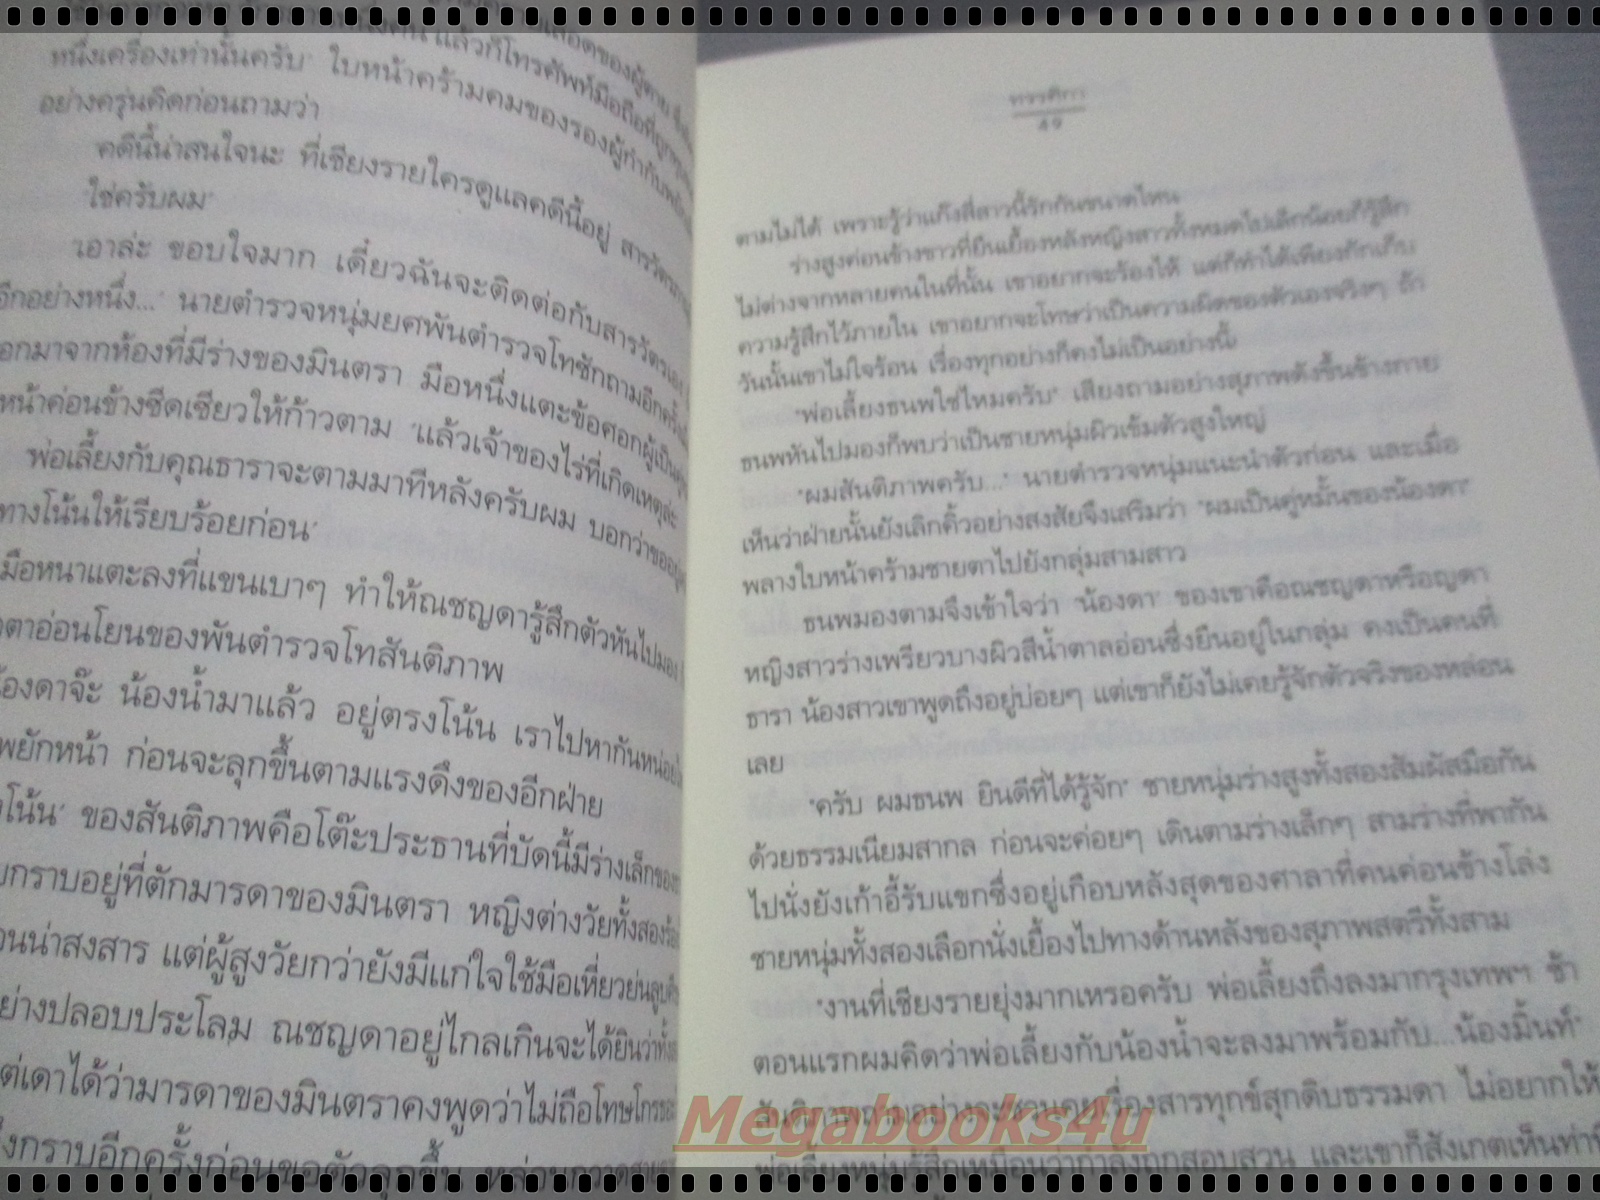 หนึ่งเครื่องเท่านั้นครับ" ใบหน้าคร้ามคมของรองผู้กำกับ
อย่างครุ่นคิดก่อนถามว่า
"คดีนี้น่าสนใจนะ ที่เชียงรายใครดูแลคดีนี้อยู่ สารวัตร
"ใช่ครับผม"
"เอาล่ะ ขอบใจมาก เดี๋ยวฉันจะติดต่อกับสารวัตรเอง
อีกอย่างหนึ่ง..." นายตำรวจหนุ่มยศพันตำรวจโทซักถามอีกครั้ง
อกมาจากห้องที่มีร่างของมินตรา มือหนึ่งแตะข้อศอกผู้เป็น
หน้าค่อนข้างซีดเซียวให้ก้าวตาม "แล้วเจ้าของไร่ที่เกิดเหตุล่ะ
"พ่อเลี้ยงกับคุณธาราจะตามมาทีหลังครับผม บอกว่าขออยู่
ทางโน้นให้เรียบร้อยก่อน"
มือหนาแตะลงที่แขนเบาๆ ทำให้ณชญดารู้สึกตัวหันไปมอง
ตาอ่อนโยนของพันตำรวจโทสันติภาพ
น้องดาจ๊ะ น้องน้ำมาแล้ว อยู่ตรงโน้น เราไปหากันหน่อย
พยักหน้า ก่อนจะลุกขึ้นตามแรงดึงของอีกฝ่าย
โน้น" ของสันติภาพคือโต๊ะประธานที่บัดนี้มีร่างเล็กของ
กราบอยู่ที่ตักมารดาของมินตรา หญิงต่างวัยทั้งสองร้อง
วนน่าสงสาร แต่ผู้สูงวัยกว่ายังมีแก่ใจใช้มือเหี่ยวย่นลูบ
ย่างปลอบประโลม ณชญดาอยู่ไกลเกินจะได้ยินว่าทั้ง
ต่เดาได้ว่ามารดาของมินตราคงพูดว่าไม่ถือโทษโกรธ
กราบอีกครั้งก่อนขอตัวลุกขึ้น หล่อนกวาด
หรรศิกา
49
ตามไม่ได้ เพราะรู้ว่าแก๊งสี่สาวนี้รักกันขนาดไหน
ร่างสูงค่อนข้างขาวที่ยืนเยื้องหลังหญิงสาวทั้งหมดไปเล็กน้อยก็รู้สึก
ไม่ต่างจากหลายคนในที่นั้น เขาอยากจะร้องไห้ แต่ก็ทำได้เพียงกักเก็บ
ความรู้สึกไว้ภายใน เขาอยากจะโทษว่าเป็นความผิดของตัวเองจริงๆ ถ้า
วันนั้นเขาไม่ใจร้อน เรื่องทุกอย่างก็คงไม่เป็นอย่างนี้
"พ่อเลี้ยงธนพใช่ไหมครับ" เสียงถามอย่างสุภาพดังขึ้นข้างกาย
ธนพหันไปมองก็พบว่าเป็นชายหนุ่มผิวเข้มตัวสูงใหญ่
"ผมสันติภาพครับ..." นายตำรวจหนุ่มแนะนำตัวก่อน และเมื่อ
เห็นว่าฝ่ายนั้นยังเลิกคิ้วอย่างสงสัยจึงเสริมว่า "ผมเป็นคู่หมั้นของน้องดา"
พลางใบหน้าคร้ามชายตาไปยังกลุ่มสามสาว
ธนพมองตามจึงเข้าใจว่า 'น้องดา' ของเขาคือณชญดาหรือญดา
หญิงสาวร่างเพรียวบางผิวสีน้ำตาลอ่อนซึ่งยืนอยู่ในกลุ่ม คงเป็นคนที่
ธารา น้องสาวเขาพูดถึงอยู่บ่อยๆ แต่เขาก็ยังไม่เคยรู้จักตัวจริงของหล่อน
เลย
"ครับ ผมธนพ ยินดีที่ได้รู้จัก" ชายหนุ่มร่างสูงทั้งสองสัมผัสมือกัน
ด้วยธรรมเนียมสากล ก่อนจะค่อยๆ เดินตามร่างเล็กๆ สามร่างที่พากัน
ไปนั่งยังเก้าอี้รับแขกซึ่งอยู่เกือบหลังสุดของศาลาที่คนค่อนข้างโล่ง
ชายหนุ่มทั้งสองเลือกนั่งเยื้องไปทางด้านหลังของสุภาพสตรีทั้งสาม
"งานที่เชียงรายยุ่งมากเหรอครับ พ่อเลี้ยงถึงลงมากรุงเทพฯ ช้า
ตอนแรกผมคิดว่าพ่อเลี้ยงกับน้องน้ำจะลงมาพร้อมกับ...น้องมิ้นท์"
สันติภาพถามอย่างจะชวนคุยเรื่องสารทุกข์สุกดิบธรรมดา ไม่อยากให้
พ่อเลี้ยงหนุ่มรู้สึกเหมือนว่ากำลังถูกสอบสวน และเขาก็สังเกตเห็นท่าที
Megabooks4u